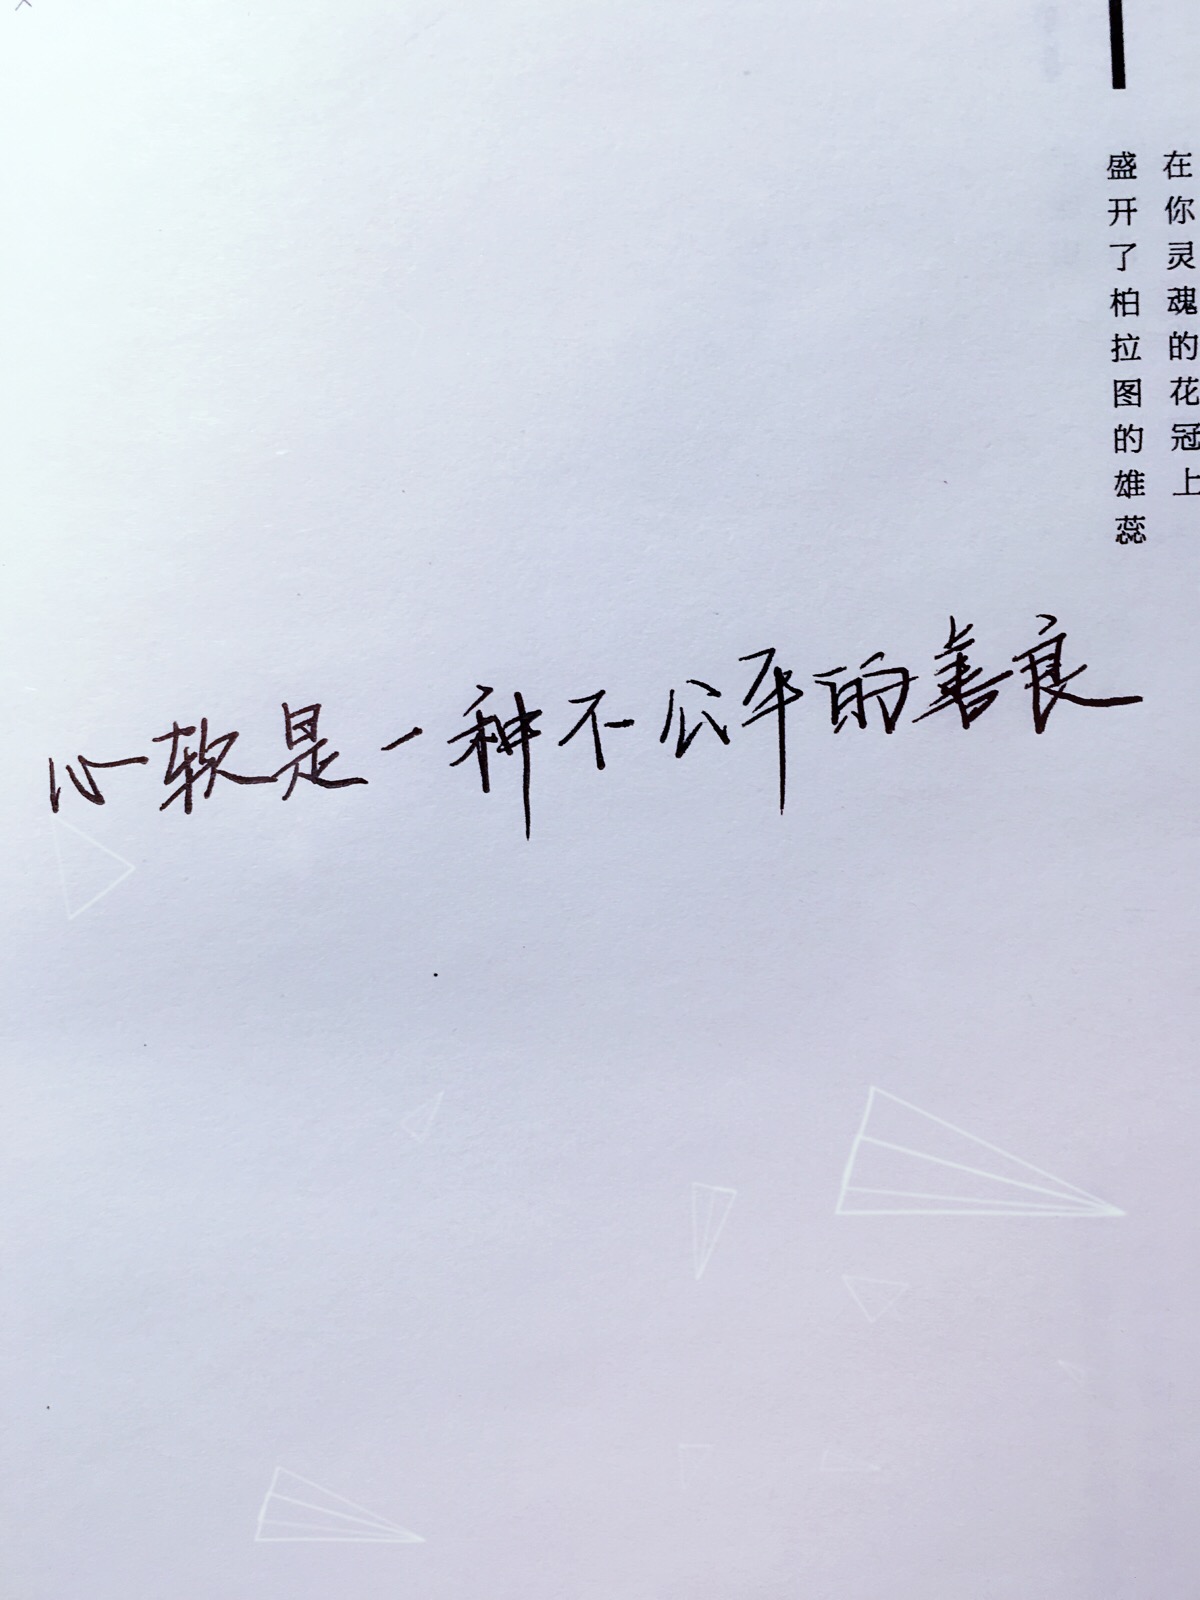 在你灵魂的花冠上
盛开了柏拉图的雄蕊
心软是一种不公平的善良